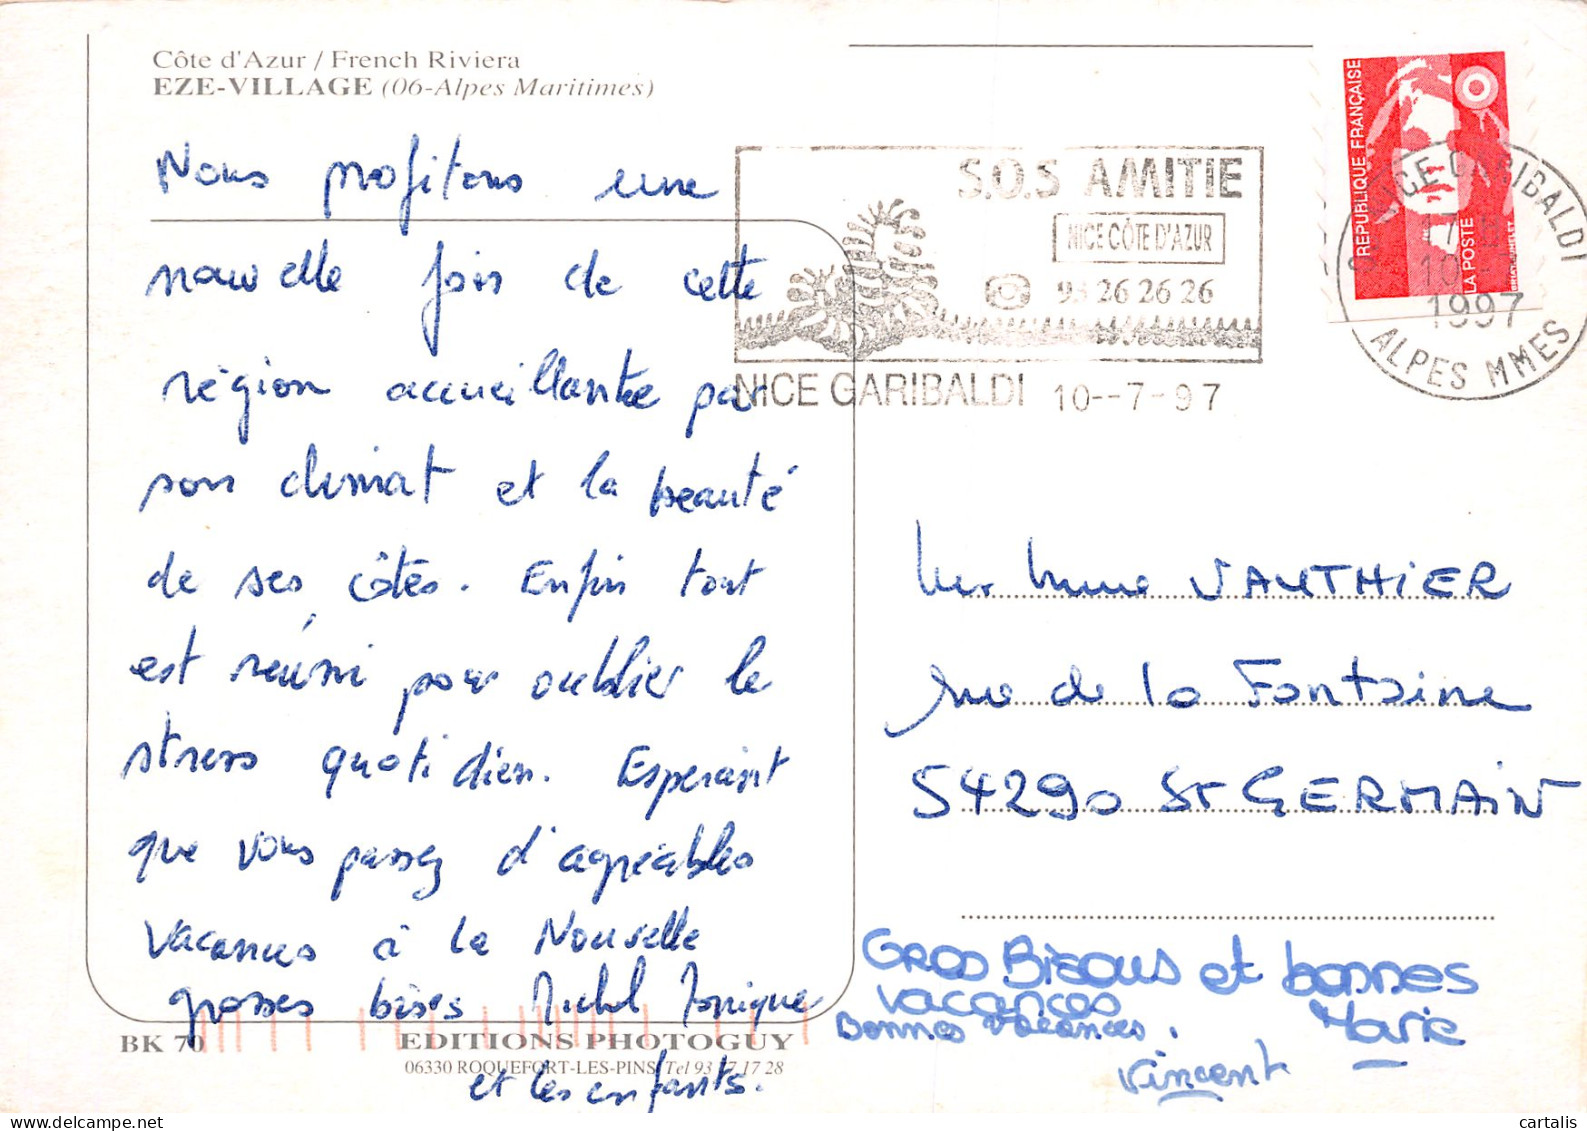 Côte d'Azur / French Riviera
EZE-VILLAGE (06-Alpes Maritimes)
Nous profitons une
nouvelle fois de cette
région accueillante par
son climat et la beauté
de ses côtes. Enfin tout
est réuni pour oublier le
stress quotidien. Esperant
que vous passez d'agréables
vacances à la Nouvelle
grosses bises Michel Monique
et les enfants.
BK 70
EDITIONS PHOTOGUY
06330 ROQUEFORT-LES-PINS Tel 93 77 17 28
S.O.S AMITIE
NICE CÔTE D'AZUR
93 26 26 26
NICE GARIBALDI 10--7-97
REPUBLIQUE FRANÇAISE
LA POSTE
NICE GARIBALDI
17
10
1997
ALPES MMES
Mr Mme VAUTHIER
rue de la Fontaine
54290 St GERMAIN
Gros Bisous et bonnes
vacances
Marie
Bonnes vacances.
Vincent
cartalis